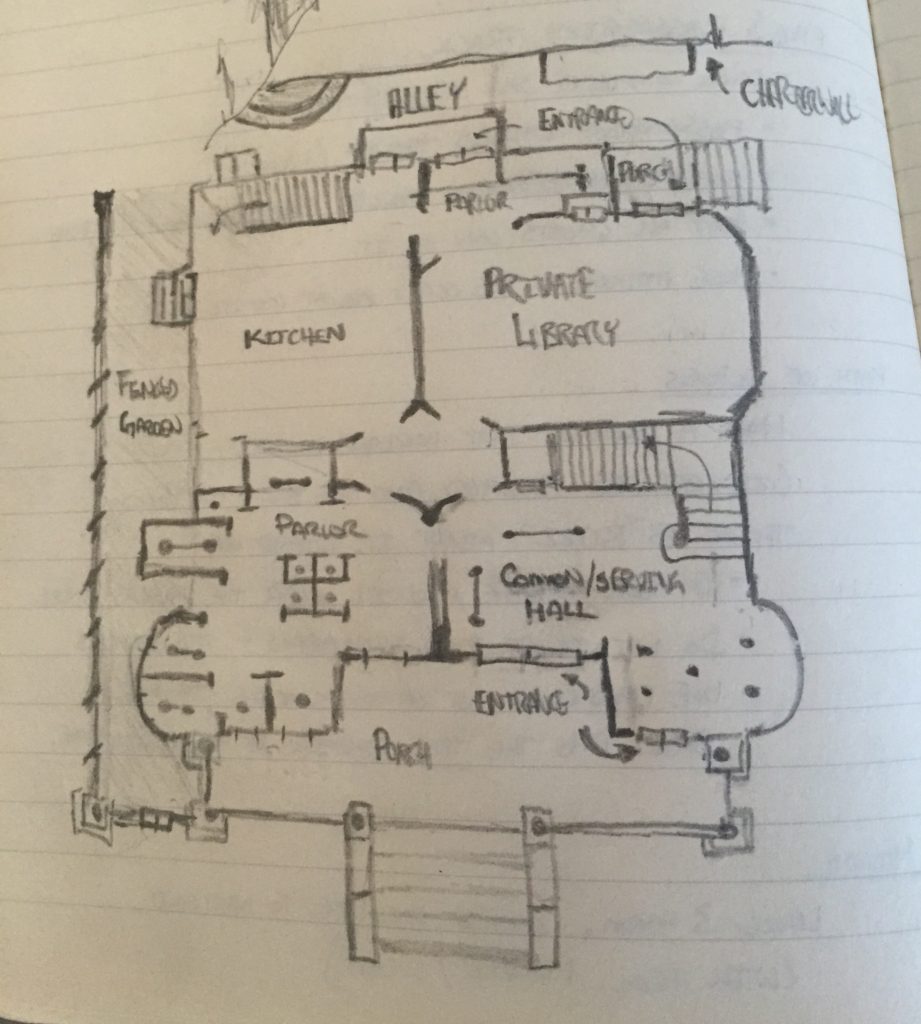 ALLEY
ENTRANCE
PORCH
PARLOR
PRIVATE
LIBRARY
KITCHEN
FENCED
GARDEN
PARLOR
COMMON/SERVING
HALL
ENTRANCE
PORCH